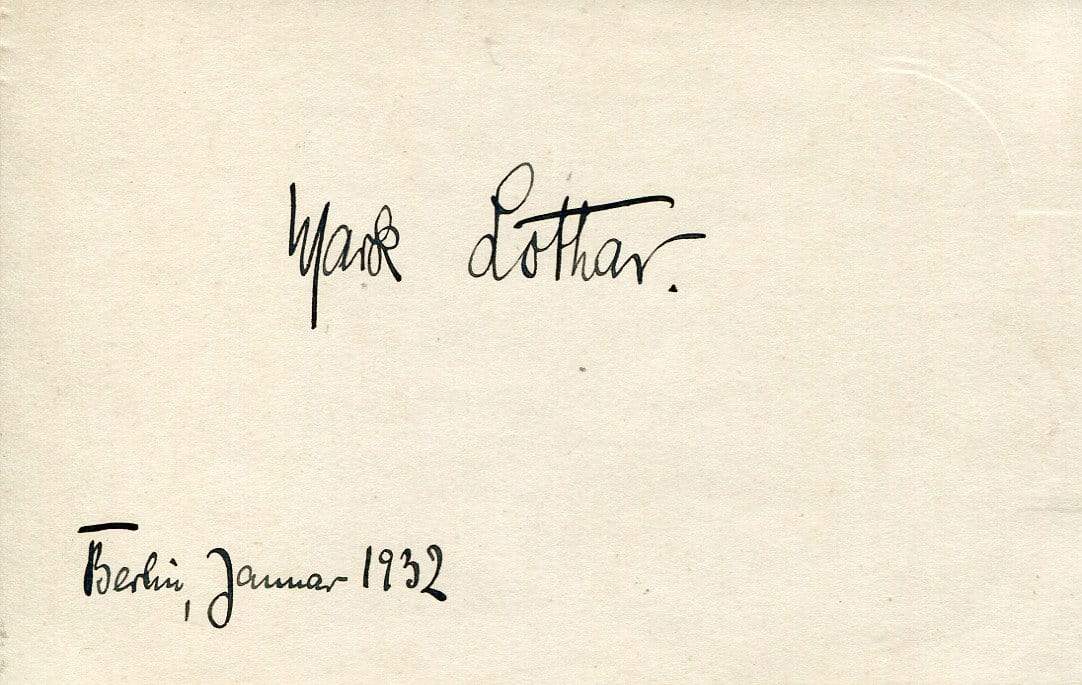 Mark Lothar.
Berlin, Januar 1932